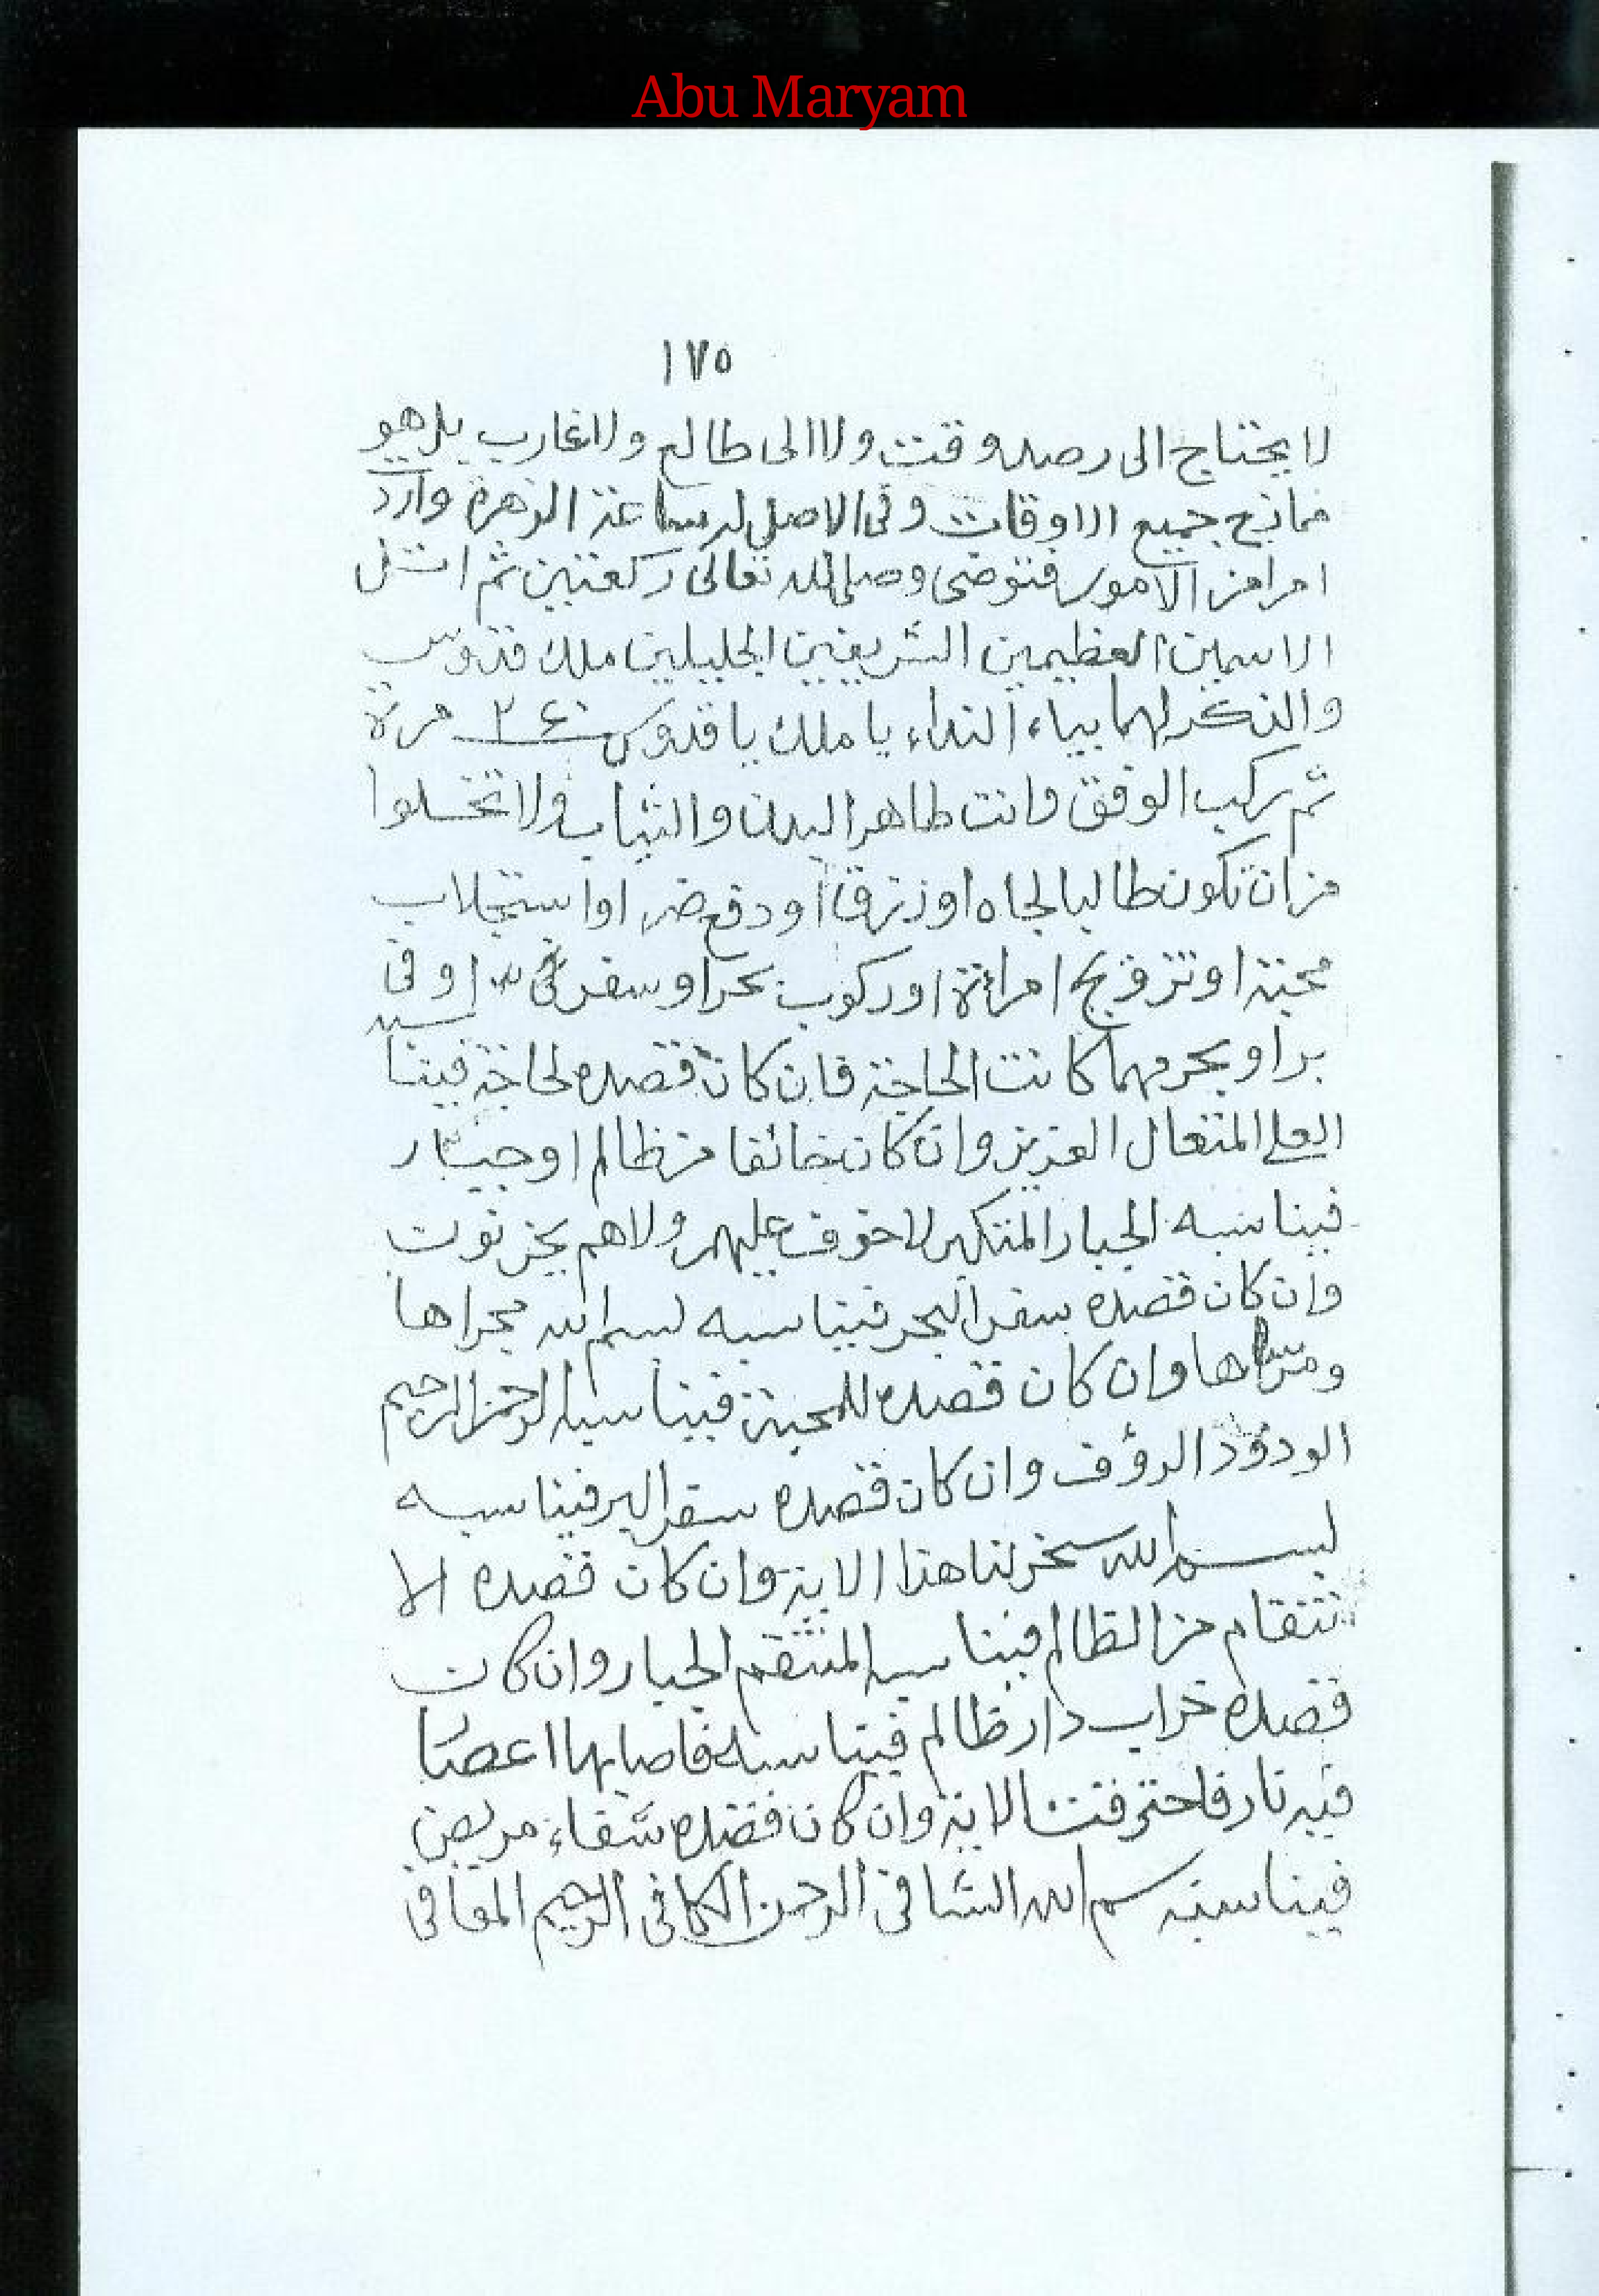 Abu Maryam
١٧٥
لا يحتاج الى رصد وقت ولا الى طالع ولا غارب بل هو
جميع الاوقات وفى الاصل له ساعة الزهرة وارد
امرا من الامور فتوضى وصلى لله تعالى ركعتين ثم
الاسمين العظيمين الشريفين الجليلين ملك قدوس
والذكر لهما بياء النداء يا ملك يا قدوس مرة
ثم ركب الوفق وانت طاهر البدن والثياب ولا تخلوا
من ان تكون طالبا لجاه او رزقا او دفع ضر او استجلاب
محبة او تزويج امرائة او ركوب بحر او سفر فى او فى
بر او بحر مهما كانت الحاجة فان كان قصده لحاجة فيناسبه
العلى المتعال العزيز وان كان خائفا من ظالم او جبار
فيناسبه الجبار المتكبر لا خوف عليهم ولا هم يحزنون
وان كان قصده سفر البحر فيناسبه بسم الله مجراها
ومرساها وان كان قصده للمحبة فيناسبه الرحمن الرحيم
الودود الرؤف وان كان قصده سفر البر فيناسبه
بسم الله سخر لنا هذا الاية وان كان قصده الا
نتقام من الظالم فيناسبه المنتقم الجبار وان كان
قصده خراب دار ظالم فيناسبه فاصابها اعصار
فيه نار فاحترقت الاية وان كان قصده شفاء مريض
فيناسبه سم الله الشافى الرحمن الكافى الرحيم المعافى